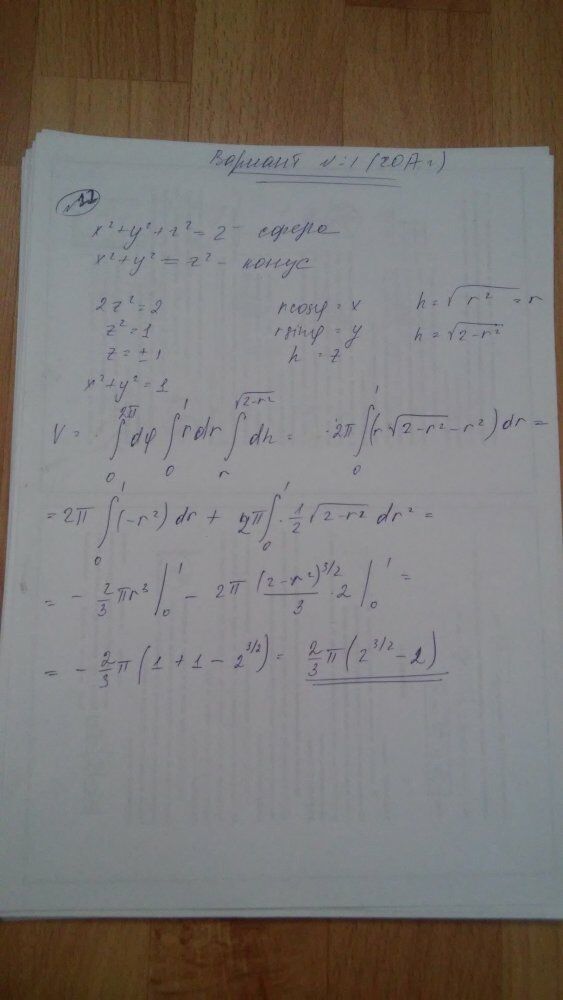 Вариант №1 (20
№12
x² + y² + z² = 2 - сфера
x² + y² = z² - конус
2z² = 2
z² = 1
z = ± 1
x² + y² = 1
r cosφ = x
r sinφ = y
h = z
h = √r² = r
h = √2-r²
V = ∫₀^2π dφ ∫₀^1 r dr ∫_r^√2-r² dh = 2π ∫₀^1 (r √2-r² - r²) dr =
= 2π ∫₀^1 (-r²) dr + 2π ∫₀^1 · 1/2 √2-r² dr² =
= - 2/3 πr³ |₀^1 - 2π (2-r²)^3/2 / 3 · 2 |₀^1 =
= - 2/3 π (1 + 1 - 2^3/2) = 2/3 π (2^3/2 - 2)